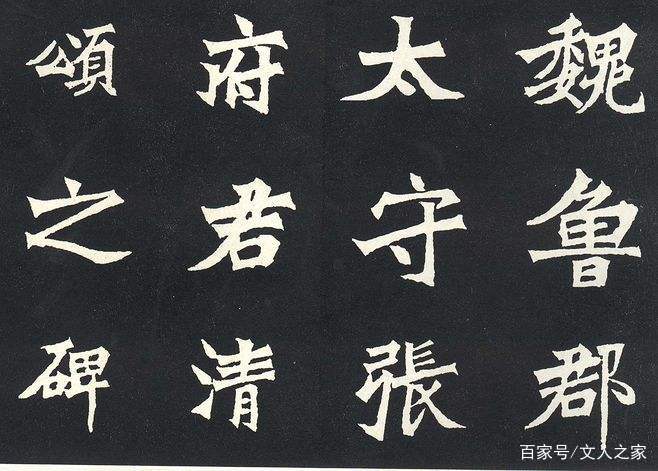 魏鲁郡
太守張
府君清
頌之碑
百家号/文人之家